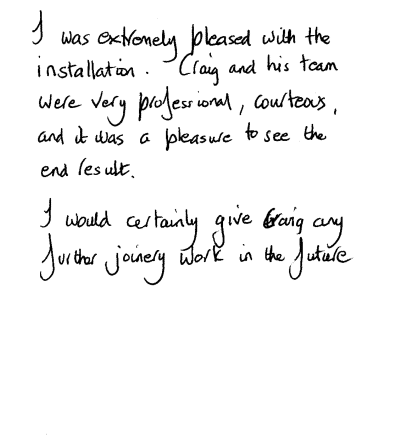 I was extremely pleased with the
installation. Craig and his team
were very professional, courteous,
and it was a pleasure to see the
end result.
I would certainly give Craig any
further joinery work in the future